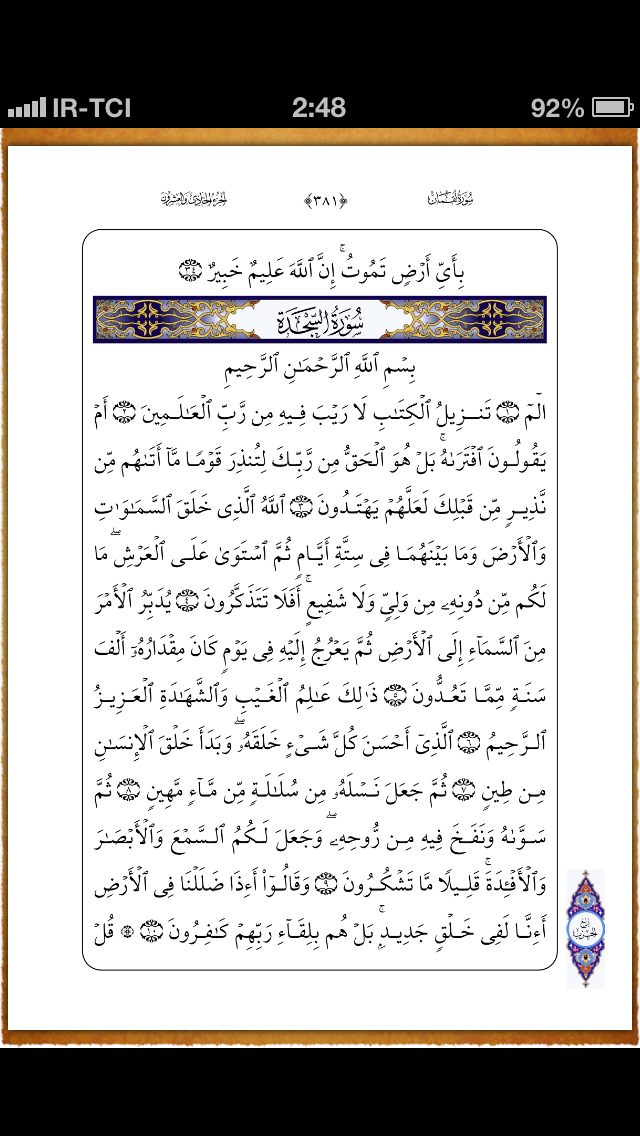 IR-TCI 2:48 92%
سُورَةُ لُقۡمَان ﴿٣٨١﴾ الجزء الحادي والعشرون
بِأَيِّ أَرۡضٖ تَمُوتُۚ إِنَّ ٱللَّهَ عَلِيمٌ خَبِيرُۢ ٣٤
سُورَةُ السَّجۡدَةِ
بِسۡمِ ٱللَّهِ ٱلرَّحۡمَٰنِ ٱلرَّحِيمِ
الٓمٓ ١ تَنزِيلُ ٱلۡكِتَٰبِ لَا رَيۡبَ فِيهِ مِن رَّبِّ ٱلۡعَٰلَمِينَ ٢ أَمۡ
يَقُولُونَ ٱفۡتَرَىٰهُۚ بَلۡ هُوَ ٱلۡحَقُّ مِن رَّبِّكَ لِتُنذِرَ قَوۡمٗا مَّآ أَتَىٰهُم مِّن
نَّذِيرٖ مِّن قَبۡلِكَ لَعَلَّهُمۡ يَهۡتَدُونَ ٣ ٱللَّهُ ٱلَّذِي خَلَقَ ٱلسَّمَٰوَٰتِ
وَٱلۡأَرۡضَ وَمَا بَيۡنَهُمَا فِي سِتَّةِ أَيَّامٖ ثُمَّ ٱسۡتَوَىٰ عَلَى ٱلۡعَرۡشِۖ مَا
لَكُم مِّن دُونِهِۦ مِن وَلِيّٖ وَلَا شَفِيعٍۚ أَفَلَا تَتَذَكَّرُونَ ٤ يُدَبِّرُ ٱلۡأَمۡرَ
مِنَ ٱلسَّمَآءِ إِلَى ٱلۡأَرۡضِ ثُمَّ يَعۡرُجُ إِلَيۡهِ فِي يَوۡمٖ كَانَ مِقۡدَارُهُۥٓ أَلۡفَ
سَنَةٖ مِّمَّا تَعُدُّونَ ٥ ذَٰلِكَ عَٰلِمُ ٱلۡغَيۡبِ وَٱلشَّهَٰدَةِ ٱلۡعَزِيزُ
ٱلرَّحِيمُ ٦ ٱلَّذِيٓ أَحۡسَنَ كُلَّ شَيۡءٍ خَلَقَهُۥۖ وَبَدَأَ خَلۡقَ ٱلۡإِنسَٰنِ
مِن طِينٖ ٧ ثُمَّ جَعَلَ نَسۡلَهُۥ مِن سُلَٰلَةٖ مِّن مَّآءٖ مَّهِينٖ ٨ ثُمَّ
سَوَّىٰهُ وَنَفَخَ فِيهِ مِن رُّوحِهِۦۖ وَجَعَلَ لَكُمُ ٱلسَّمۡعَ وَٱلۡأَبۡصَٰرَ
وَٱلۡأَفۡـِٔدَةَۚ قَلِيلٗا مَّا تَشۡكُرُونَ ٩ وَقَالُوٓاْ أَءِذَا ضَلَلۡنَا فِي ٱلۡأَرۡضِ
أَءِنَّا لَفِي خَلۡقٖ جَدِيدِۭۚ بَلۡ هُم بِلِقَآءِ رَبِّهِمۡ كَٰفِرُونَ ١٠ ۞ قُلۡ
ربع الحزب